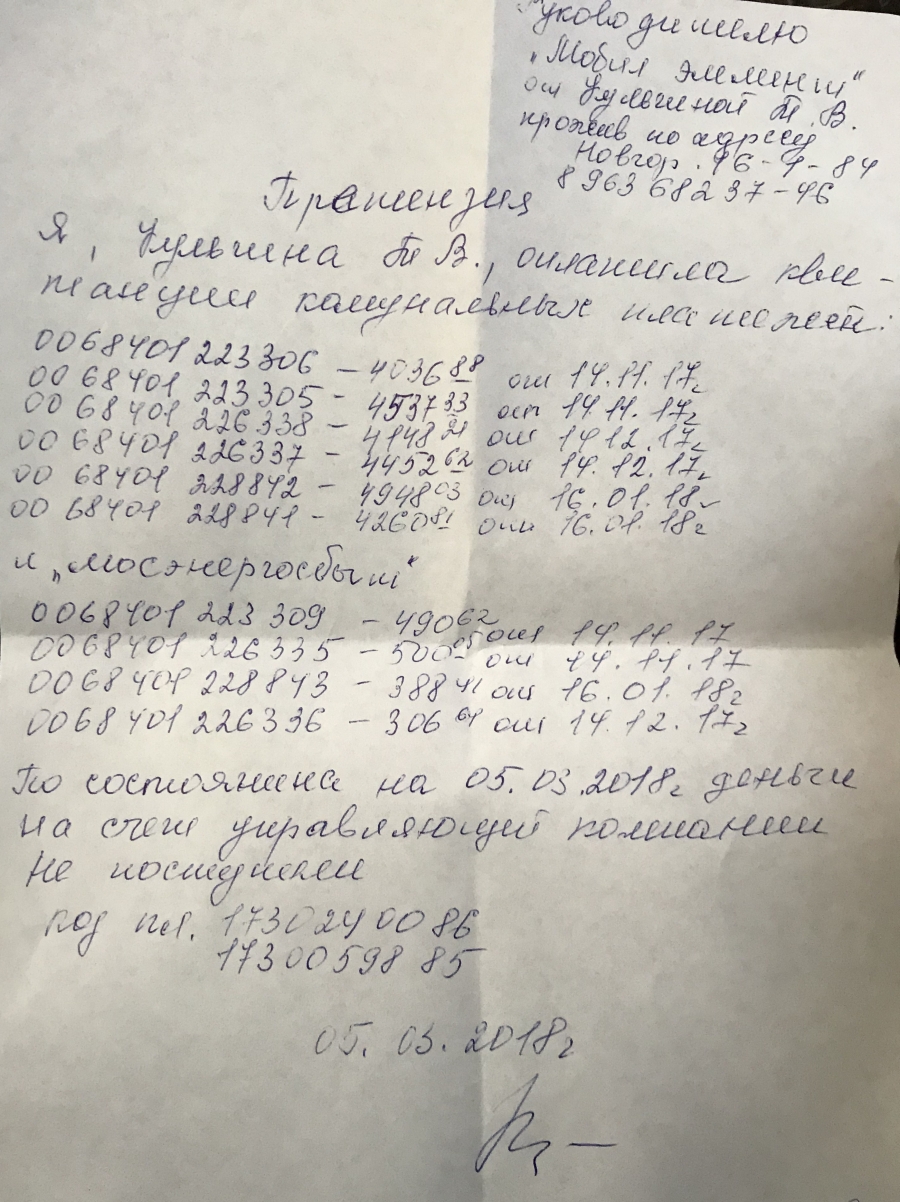 Руководителю
"Мобил Элемент"
от Кульчиной Т. В.
прожив по адресу
Новгор. 16-1-84
8 963 68237-46
Претензия
Я, Кульчина Т В., оплатила кви-
танции комунальных платежей:
0068401 223306 - 4036 88 от 14.11.17г
0068401 223305 - 4537 33 от 14.11.17г
0068401 226338 - 4148 21 от 14.12.17г
0068401 226337 - 4452 62 от 14.12.17г
0068401 228842 - 4948 03 от 16.01.18г
0068401 228841 - 4260 81 от 16.01.18г
и "Мосэнергосбыт"
0068401 223309 - 490 62 от 14.11.17
0068401 226335 - 500 от 14.11.17
0068401 228843 - 388 41 от 16.01.18г
0068401 226336 - 306 64 от 14.12.17г
По состоянина на 05.03.2018г деньги
на счет управляющей компании
не поступили
код пл. 1730240086
1730059885
05.03.2018г